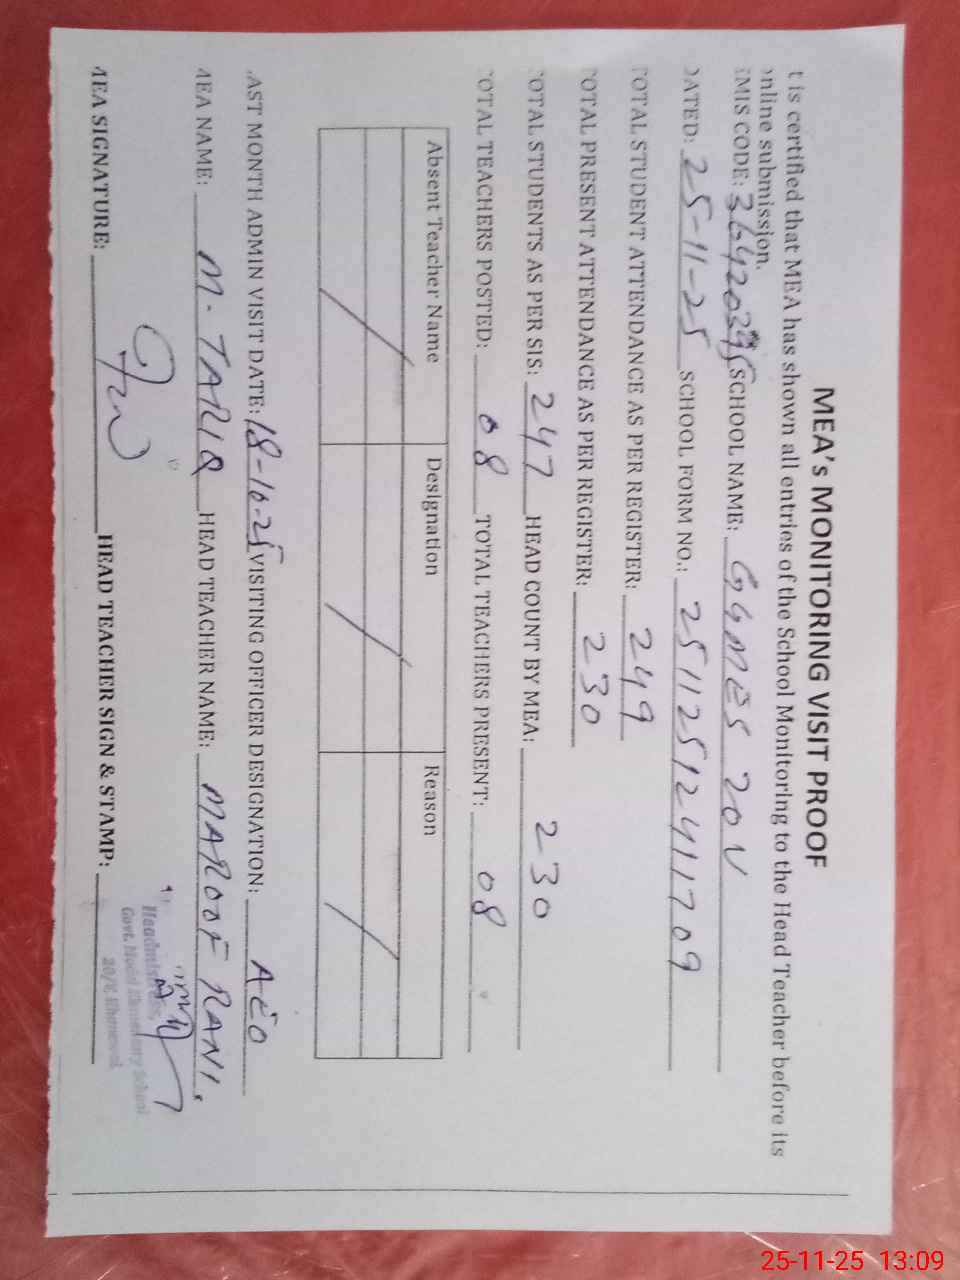 MEA's MONITORING VISIT PROOF
t is certified that MEA has shown all entries of the School Monitoring to the Head Teacher before its
nline submission.
EMIS CODE: SCHOOL NAME: GGMES 20V
DATED: 25-11-25 SCHOOL FORM NO.: 25112512411709
TOTAL STUDENT ATTENDANCE AS PER REGISTER: 249
TOTAL PRESENT ATTENDANCE AS PER REGISTER: 230
TOTAL STUDENTS AS PER SIS: 247 HEAD COUNT BY MEA: 230
TOTAL TEACHERS POSTED: 08 TOTAL TEACHERS PRESENT: 08
Absent Teacher Name Designation Reason
AST MONTH ADMIN VISIT DATE: 18-10-25 VISITING OFFICER DESIGNATION: AEO
MEA NAME: M. TARIQ HEAD TEACHER NAME: MAROOF RANI.
MEA SIGNATURE: HEAD TEACHER SIGN & STAMP:
Headmistress
Govt. Model Elementary School
20/V, Khanewal
25-11-25 13:09